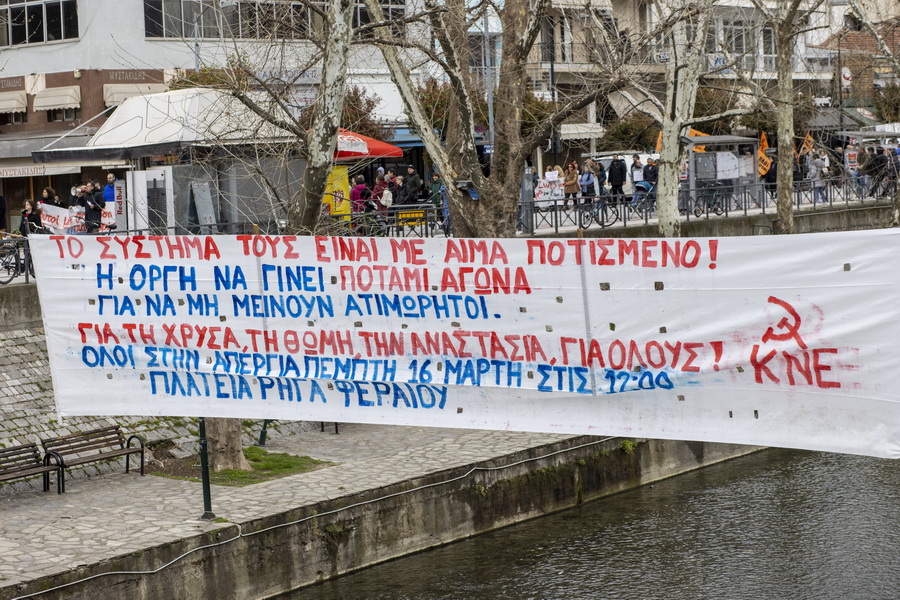 ΜΥΣΤΑΚΙΔΗΣ
ΤΟ ΣΥΣΤΗΜΑ ΤΟΥΣ ΕΙΝΑΙ ΜΕ ΑΙΜΑ ΠΟΤΙΣΜΕΝΟ!
Η ΟΡΓΗ ΝΑ ΓΙΝΕΙ ΠΟΤΑΜΙ ΑΓΩΝΑ
ΓΙΑ ΝΑ ΜΗ ΜΕΙΝΟΥΝ ΑΤΙΜΩΡΗΤΟΙ.
ΓΙΑ ΤΗ ΧΡΥΣΑ, ΤΗ ΘΩΜΗ, ΤΗΝ ΑΝΑΣΤΑΣΙΑ, ΓΙΑ ΟΛΟΥΣ!
ΟΛΟΙ ΣΤΗΝ ΑΠΕΡΓΙΑ ΠΕΜΠΤΗ 16 ΜΑΡΤΗ ΣΤΙΣ 12:00
ΠΛΑΤΕΙΑ ΡΗΓΑ ΦΕΡΑΙΟΥ
ΚΝΕ
Red Bull